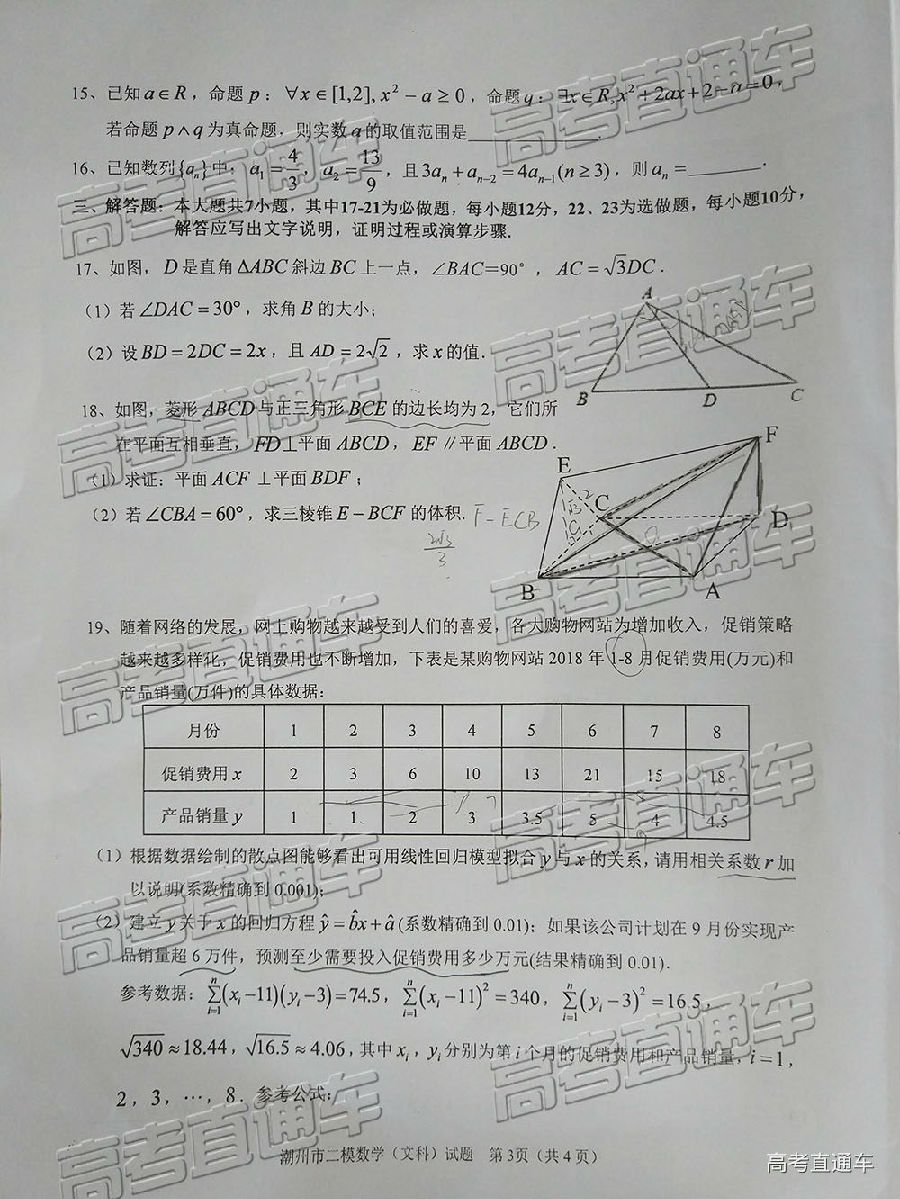 15、已知a∈R，命题p：∀x∈[1,2], x²－a≥0，命题q：∃x∈R, x²+2ax+2－a=0，
若命题p∧q为真命题，则实数a的取值范围是________
16、已知数列{aₙ}中，a₁=4/3，a₂=13/9，且3aₙ+aₙ₋₂=4aₙ₋₁(n≥3)，则aₙ=________.
三、解答题：本大题共7小题，其中17-21为必做题，每小题12分，22、23为选做题，每小题10分，
解答应写出文字说明，证明过程或演算步骤.
17、如图，D是直角ΔABC斜边BC上一点，∠BAC=90°，AC=√3DC.
（1）若∠DAC=30°，求角B的大小；
（2）设BD=2DC=2x，且AD=2√2，求x的值.
A
B D C
18、如图，菱形ABCD与正三角形BCE的边长均为2，它们所
在平面互相垂直，FD⊥平面ABCD，EF∥平面ABCD.
（1）求证：平面ACF⊥平面BDF；
（2）若∠CBA=60°，求三棱锥E－BCF的体积. F-ECB
2√3/3
F
E
C
D
B A
19、随着网络的发展，网上购物越来越受到人们的喜爱，各大购物网站为增加收入，促销策略
越来越多样化，促销费用也不断增加，下表是某购物网站2018年1-8月促销费用(万元)和
产品销量(万件)的具体数据：
月份 1 2 3 4 5 6 7 8
促销费用x 2 3 6 10 13 21 15 18
产品销量y 1 1 2 3 3.5 5 4 4.5
（1）根据数据绘制的散点图能够看出可用线性回归模型拟合y与x的关系，请用相关系数r加
以说明(系数精确到0.001)；
（2）建立y关于x的回归方程ŷ=b̂x+â(系数精确到0.01)；如果该公司计划在9月份实现产
品销量超6万件，预测至少需要投入促销费用多少万元(结果精确到0.01).
参考数据：∑ⁿᵢ₌₁(xᵢ－11)(yᵢ－3)=74.5，∑ⁿᵢ₌₁(xᵢ－11)²=340，∑ⁿᵢ₌₁(yᵢ－3)²=16.5，
√340≈18.44，√16.5≈4.06，其中xᵢ，yᵢ分别为第i个月的促销费用和产品销量，i=1，
2，3，…，8．参考公式：
潮州市二模数学（文科）试题 第3页（共4页）
高考直通车